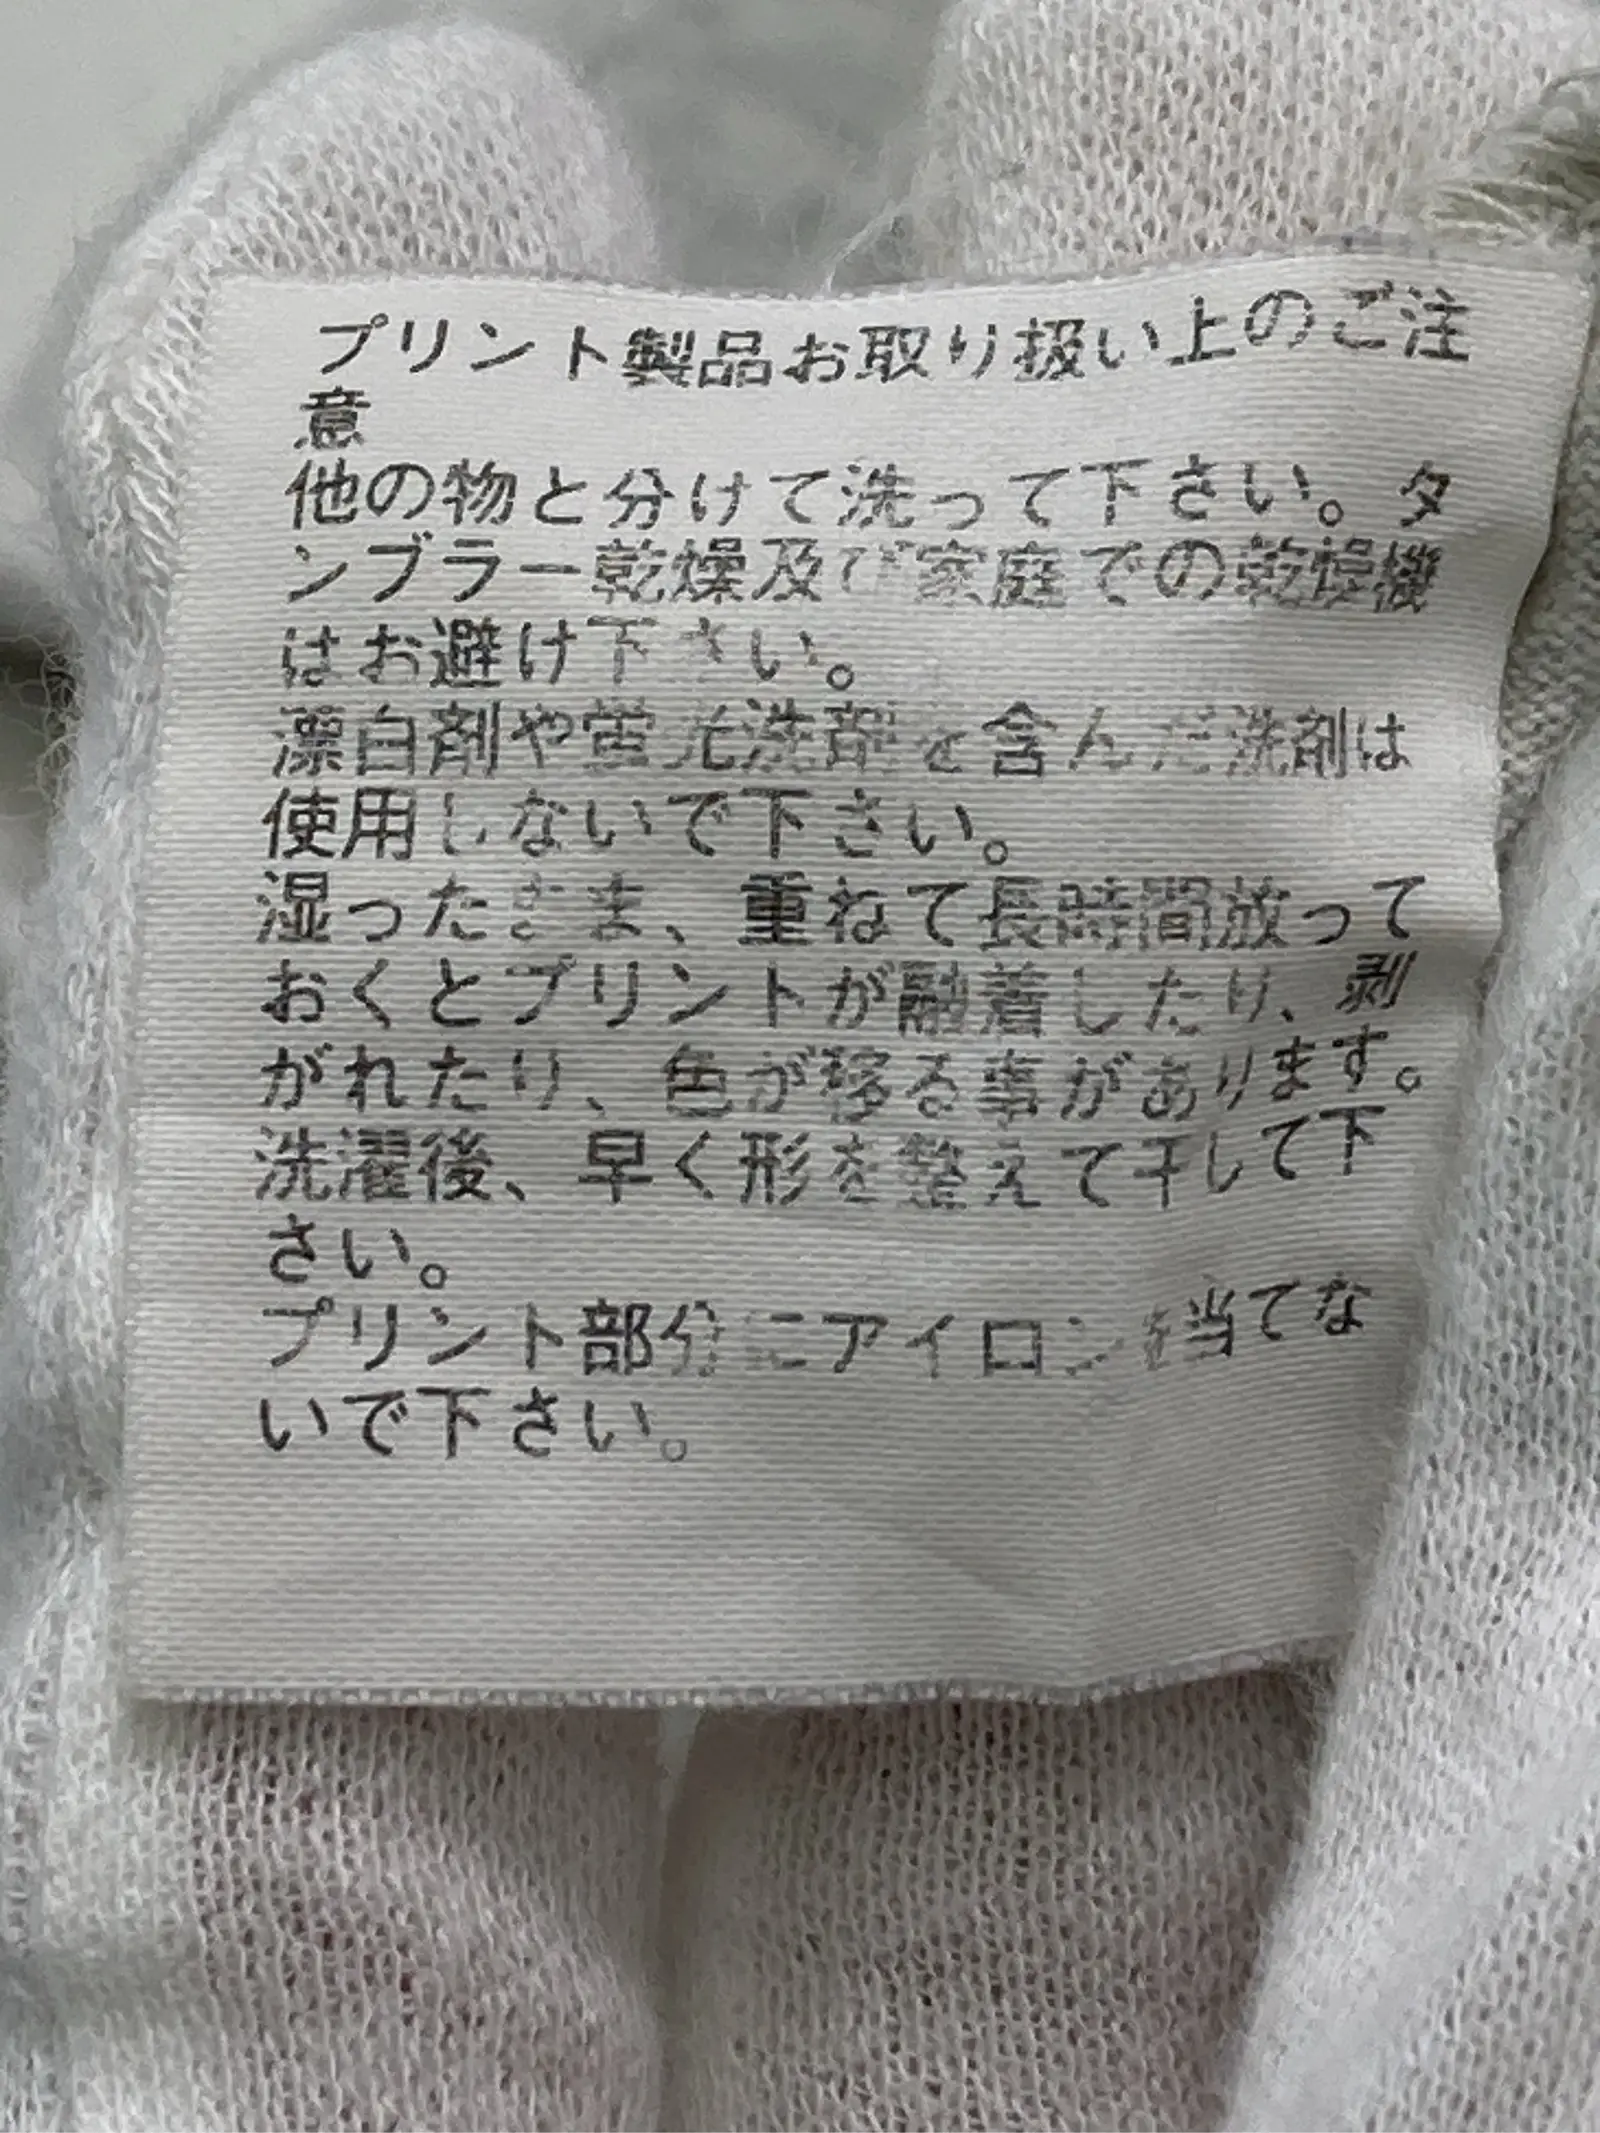 プリント製品お取り扱い上のご注
意
他の物と分けて洗って下さい。タ
ンブラー乾燥及び家庭での乾燥機
はお避け下さい。
漂白剤や蛍光洗剤を含んだ洗剤は
使用しないで下さい。
湿ったまま、重ねて長時間放って
おくとプリントが融着したり、剥
がれたり、色が移る事があります。
洗濯後、早く形を整えて干して下
さい。
プリント部分にアイロンを当てな
いで下さい。